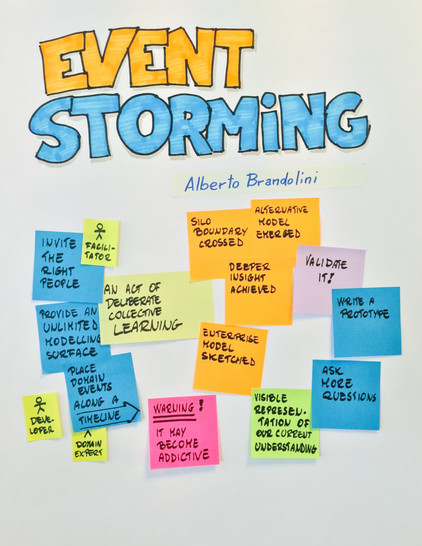 EVENT
STORMING
Alberto Brandolini
INVITE
THE
RIGHT
PEOPLE
FACILI-
TATOR
PROVIDE AN
UNLIMITED
MODELLING
SURFACE
PLACE
DOMAIN
EVENTS
ALONG A
TIMELINE
DEVE-
LOPER
DOMAIN
EXPERT
AN ACT OF
DELIBERATE
COLLECTIVE
LEARNING
SILO
BOUNDARY
CROSSED
ALTERNATIVE
MODEL
EMERGED
DEEPER
INSIGHT
ACHIEVED
ENTERPRISE
MODEL
SKETCHED
WARNING!
IT MAY
BECOME
ADDICTIVE
VISIBLE
REPRESEN-
TATION OF
OUR CURRENT
UNDERSTANDING
VALIDATE
IT!
WRITE A
PROTOTYPE
ASK
MORE
QUESTIONS